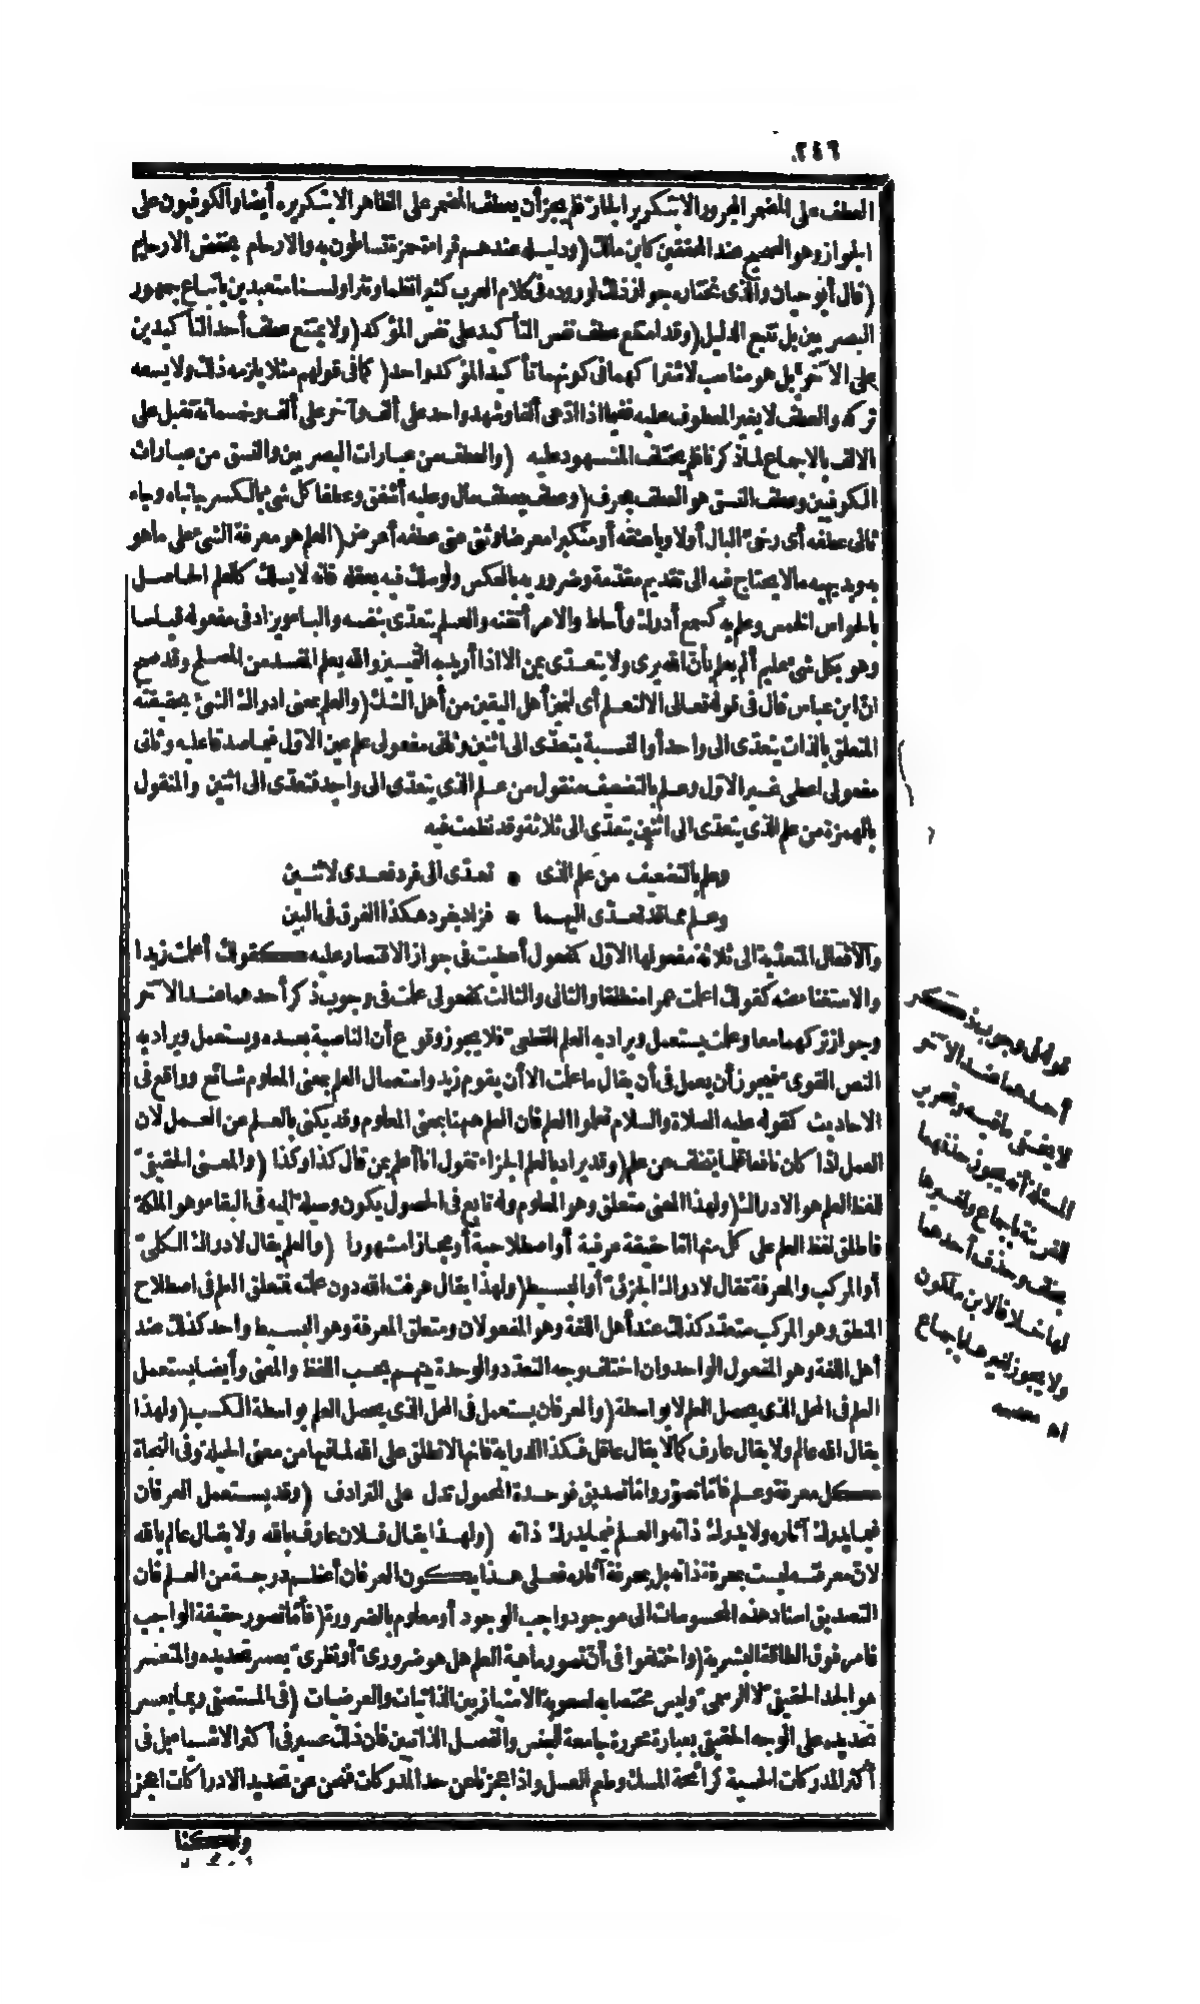 ٢٤٦
العطف على المضمر المجرور الا بتكرير الجار فلم يجز أن يعطف المضمر على الظاهر الا بتكريره أيضا والكوفيون على
الجواز وهو الصحيح عند المحققين كابن مالك (ودليله عندهم قراءة حمزة تساءلون به والارحام بخفض الارحام
(قال أبو حيان والذى نختاره جواز ذلك لوروده فى كلام العرب كثيرا نظما ونثرا ولسنا متعبدين باتباع جمهور
البصريين بل نتبع الدليل (وقد امتنع عطف نفس التأكيد على نفس المؤكد (ولا يمتنع عطف أحد التأكيدين
على الآخر بل هو مناسب لاشتراكهما فى كونهما تأكيد المؤكد واحد (كما فى قولهم مثلا يلزمه ذلك ولا يسعه
تركه والعطف لا يغير المعطوف عليه ففيما اذا ادعى ألفا وشهد واحد على ألف وآخر على ألف وخمسمائة تقبل على
الالف بالاجماع لما ذكرنا فلم يختلف المشهود عليه (والعطف من عبارات البصريين والنسق من عبارات
الكوفيين وعطف النسق هو العطف بحرف (وعطف يعطف مال وعليه أشفق وعطفا كل شئ بالكسر جانباه وجاء
ثانى عطفه أى رخى البال أو لاويا عنقه أو متكبرا معرضا وثنى عنى عطفه أعرض (العلم هو معرفة الشئ على ما هو
به وبديهيه ما لا يحتاج فيه الى تقديم مقدمة وضروريه بالعكس ولو سلك فيه بعقله فانه لا يسلك كالعلم الحاصل
بالحواس الخمس وعلم به كسمع أدرك وأحاط والامر أتقنه والعلم يتعدى بنفسه وبالباء ويزاد فى مفعوله قياسا
وهو بكل شئ عليم ألم يعلم بأن الله يرى ولا يتعدى بمن الا اذا أريد به التمييز والله يعلم المفسد من المصلح وقد صح
ان ابن عباس قال فى قوله تعالى الا لنعلم أى لنميز أهل اليقين من أهل الشك (والعلم بمعنى ادراك الشئ بحقيقته
المتعلق بالذات يتعدى الى واحد أو بالنسبة يتعدى الى اثنين وثانى مفعولى علم عين الاول فيما صدقا عليه وثانى
مفعولى اعطى غير الاول وعلم بالتضعيف منقول من علم الذى يتعدى الى واحد فتعدى الى اثنين والمنقول
بالهمزة من علم الذى يتعدى الى اثنين يتعدى الى ثلاثة وقد نظمت فيه
وعلم بالتضعيف من علم الذى * تعدى الى فرد فعدى لاثنين
وعلم مما قد تعدى اليهما * فزاد بفرد هكذا الفرق فى البين
والافعال المتعدية الى ثلاثة مفعولها الاول كمفعول أعطيت فى جواز الاقتصار عليه كقولك أعلمت زيدا
والاستغناء عنه كقولك اعلمت عمرا منطلقا والثانى والثالث كمفعولى علمت فى وجوب ذكر أحدهما عند الآخر
وجواز تركهما معا وعلمت يستعمل ويراد به العلم القطعى فلا يجوز وقوع أن الناصبة بعده ويستعمل ويراد به
الظن القوى فيجوز أن يعمل فى أن يقال ما علمت الا أن يقوم زيد واستعمال العلم بمعنى المعلوم شائع وواقع فى
الاحاديث كقوله عليه الصلاة والسلام تعلموا العلم فان العلم ههنا بمعنى المعلوم وقد يكنى بالعلم عن العمل لان
العمل اذا كان نافعا قلما يتخلف عن علم (وقد يراد بالعلم الجزاء تقول انا أعلم بمن قال كذا وكذا (والمعنى الحقيقى
للفظ العلم هو الادراك (ولهذا المعنى متعلق وهو المعلوم وله تابع فى الحصول يكون وسيلة اليه فى البقاء وهو الملكة
فاطلق لفظ العلم على كل منها اما حقيقة عرفية أو اصطلاحية أو مجازا مشهورا (والعلم يقال لادراك الكلى
أو المركب والمعرفة تقال لادراك الجزئى أو البسيط (ولهذا يقال عرفت الله دون علمته فمتعلق العلم فى اصطلاح
المنطق وهو المركب متعدد كذلك عند أهل اللغة وهو المفعولان ومتعلق المعرفة وهو البسيط واحد كذلك عند
أهل اللغة وهو المفعول الواحد وان اختلف وجه التعدد والوحدة بينهم بحسب اللفظ والمعنى وأيضا يستعمل
العلم فى المحل الذى يحصل العلم لا بواسطة (والعرفان يستعمل فى المحل الذى يحصل العلم بواسطة الكسب (ولهذا
يقال الله عالم ولا يقال عارف كما لا يقال عاقل فكذا الدراية فانها لا تطلق على الله لما فيها من معنى الحيلة وفى النجاة
كل معرفة وعلم فاما تصور واما تصديق فوحدة المحمول تدل على الترادف (وقد يستعمل العرفان
فيما يدرك آثاره ولا يدرك ذاته والعلم فيما يدرك ذاته (ولهذا يقال فلان عارف بالله ولا يقال عالم بالله
لان معرفته ليست بمعرفة ذاته بل بمعرفة آثاره فعلى هذا يكون العرفان أعظم درجة من العلم فان
التصديق باسناد هذه المحسوسات الى موجود واجب الوجود أمر معلوم بالضرورة (فأما تصور حقيقة الواجب
فامر فوق الطاقة البشرية (واختلفوا فى أن تصور ماهية العلم هل هو ضرورى أو نظرى يعسر تحديده والمتعسر
هو الحد الحقيقى لا الرسمى وليس مختصا به لصعوبة الامتياز بين الذاتيات والعرضيات (فى المستصفى ربما يعسر
تحديده على الوجه الحقيقى بعبارة محررة جامعة للجنس والفصل الذاتيين فان ذلك عسير فى أكثر الاشياء بل فى
أكثر المدركات الحسية كرائحة المسك وطعم العسل واذا عجزنا عن حد المدركات فنحن عن تحديد الادراكات اعجز
ولكنا
قوله فى وجوب ذكر
أحدهما عند الآخر
لا يخفى ما فيه وتحرير
المسئلة أنه يجوز حذفهما
لقرينة باجماع ولغيرها
بخلف وحذف أحدهما
لها خلافا لابن ملكون
ولا يجوز لغيرها باجماع
اه مصححه